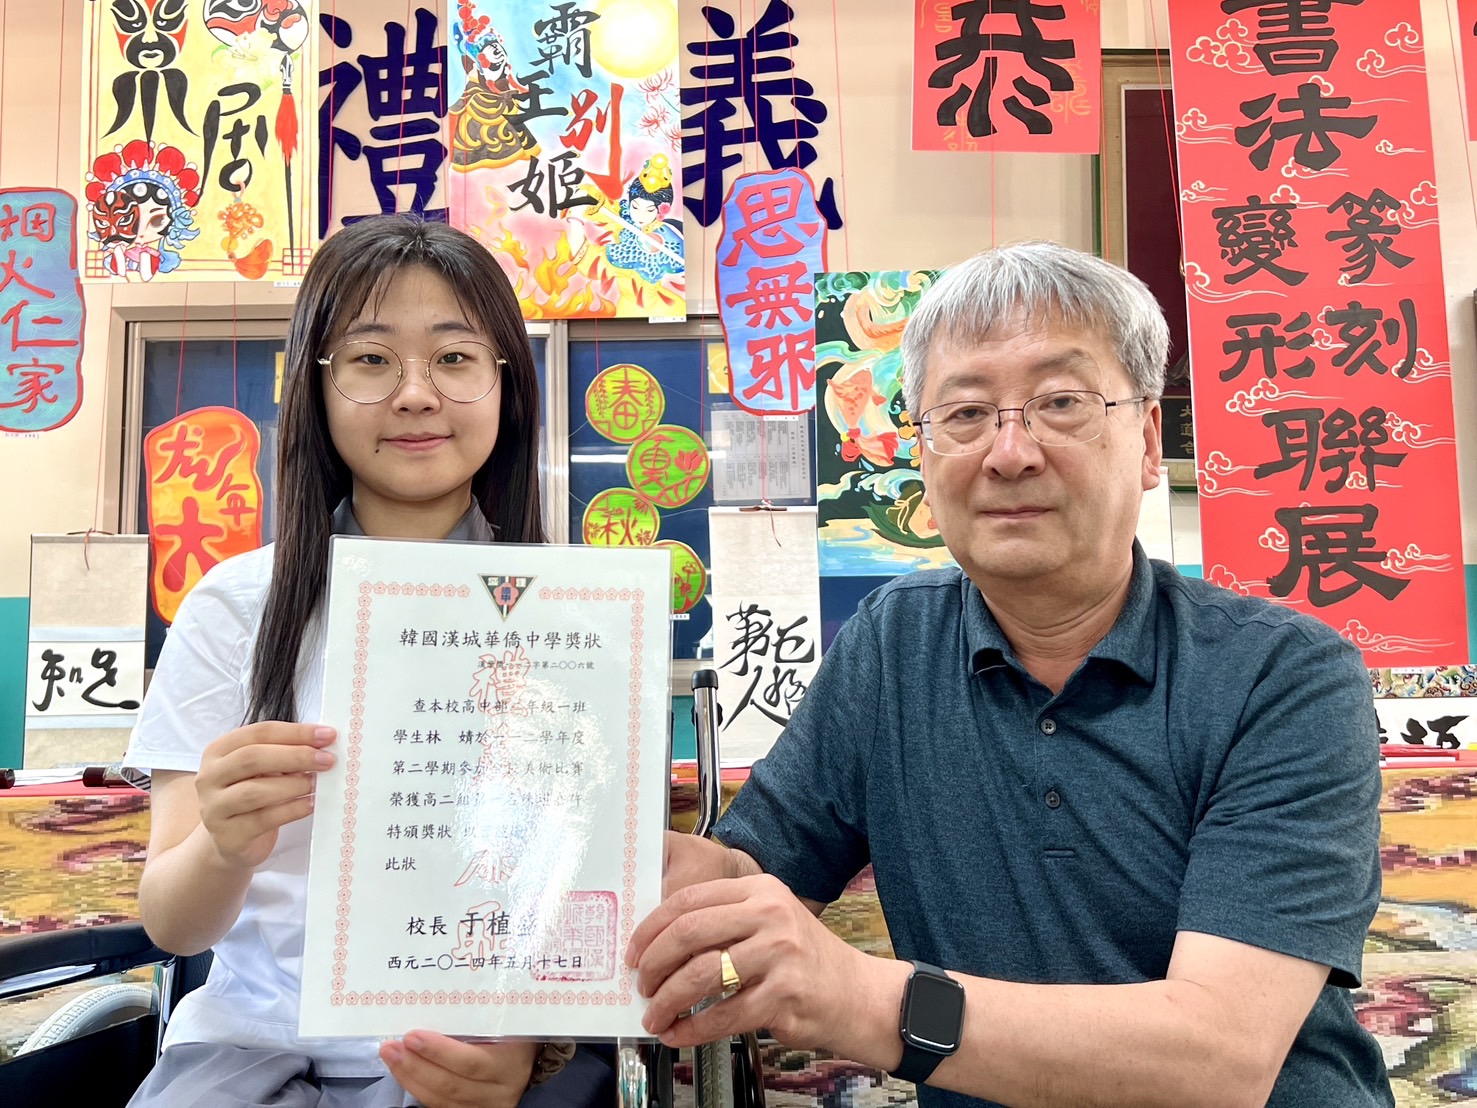 京
劇
禮
霸王
別
姬
義
恭
書法
篆刻
變形
聯展
思無邪
烟火仁家
龙年大
春
夏
秋
知足
韓國漢城華僑中學獎狀
字第二〇〇六號
查本校高中部二年級一班
學生林 婧於一一二學年度
第二學期參加全校美術比賽
榮獲高二組
特頒獎狀 以
此狀
校長 于植盛
西元二〇二四年五月十七日